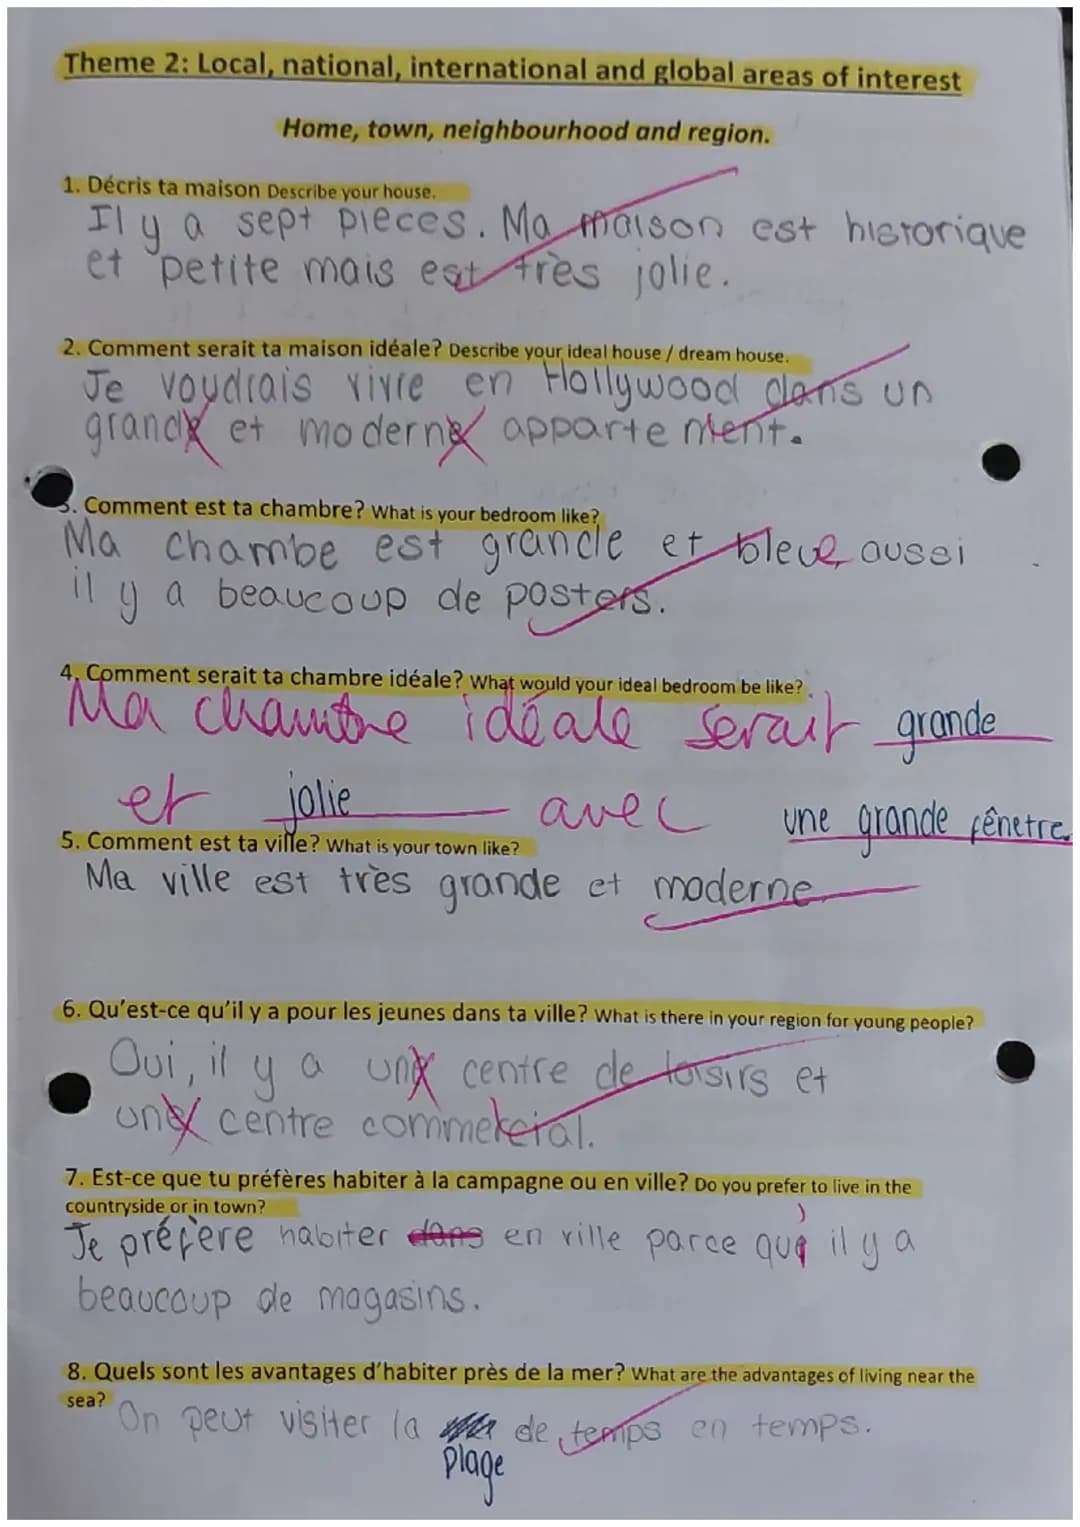 Theme 2: Local, national, international and global areas of interest
Home, town, neighbourhood and region.
1. Décris ta maison Describe your house.
Il y a sept pieces. Ma maison est historique
et petite mais est très jolie.
2. Comment serait ta maison idéale? Describe your ideal house / dream house.
Je voudrais vivre en Hollywood dans un
grande et moderne appartement.
3. Comment est ta chambre? What is your bedroom like?
Ma chambe est grande et bleue, aussi
il y a beaucoup de posters.
4. Comment serait ta chambre idéale? What would your ideal bedroom be like?
Ma chambre idéale serait grande
et jolie avec une grande fênetre.
5. Comment est ta ville? What is your town like?
Ma ville est très grande et moderne.
6. Qu'est-ce qu'il y a pour les jeunes dans ta ville? What is there in your region for young people?
Oui, il y a une centre de loisirs et
une centre commercial.
7. Est-ce que tu préfères habiter à la campagne ou en ville? Do you prefer to live in the
countryside or in town?
Je préfère habiter dans en ville parce qu' il y a
beaucoup de magasins.
8. Quels sont les avantages d'habiter près de la mer? What are the advantages of living near the
sea?
On peut visiter la de temps en temps.
plage